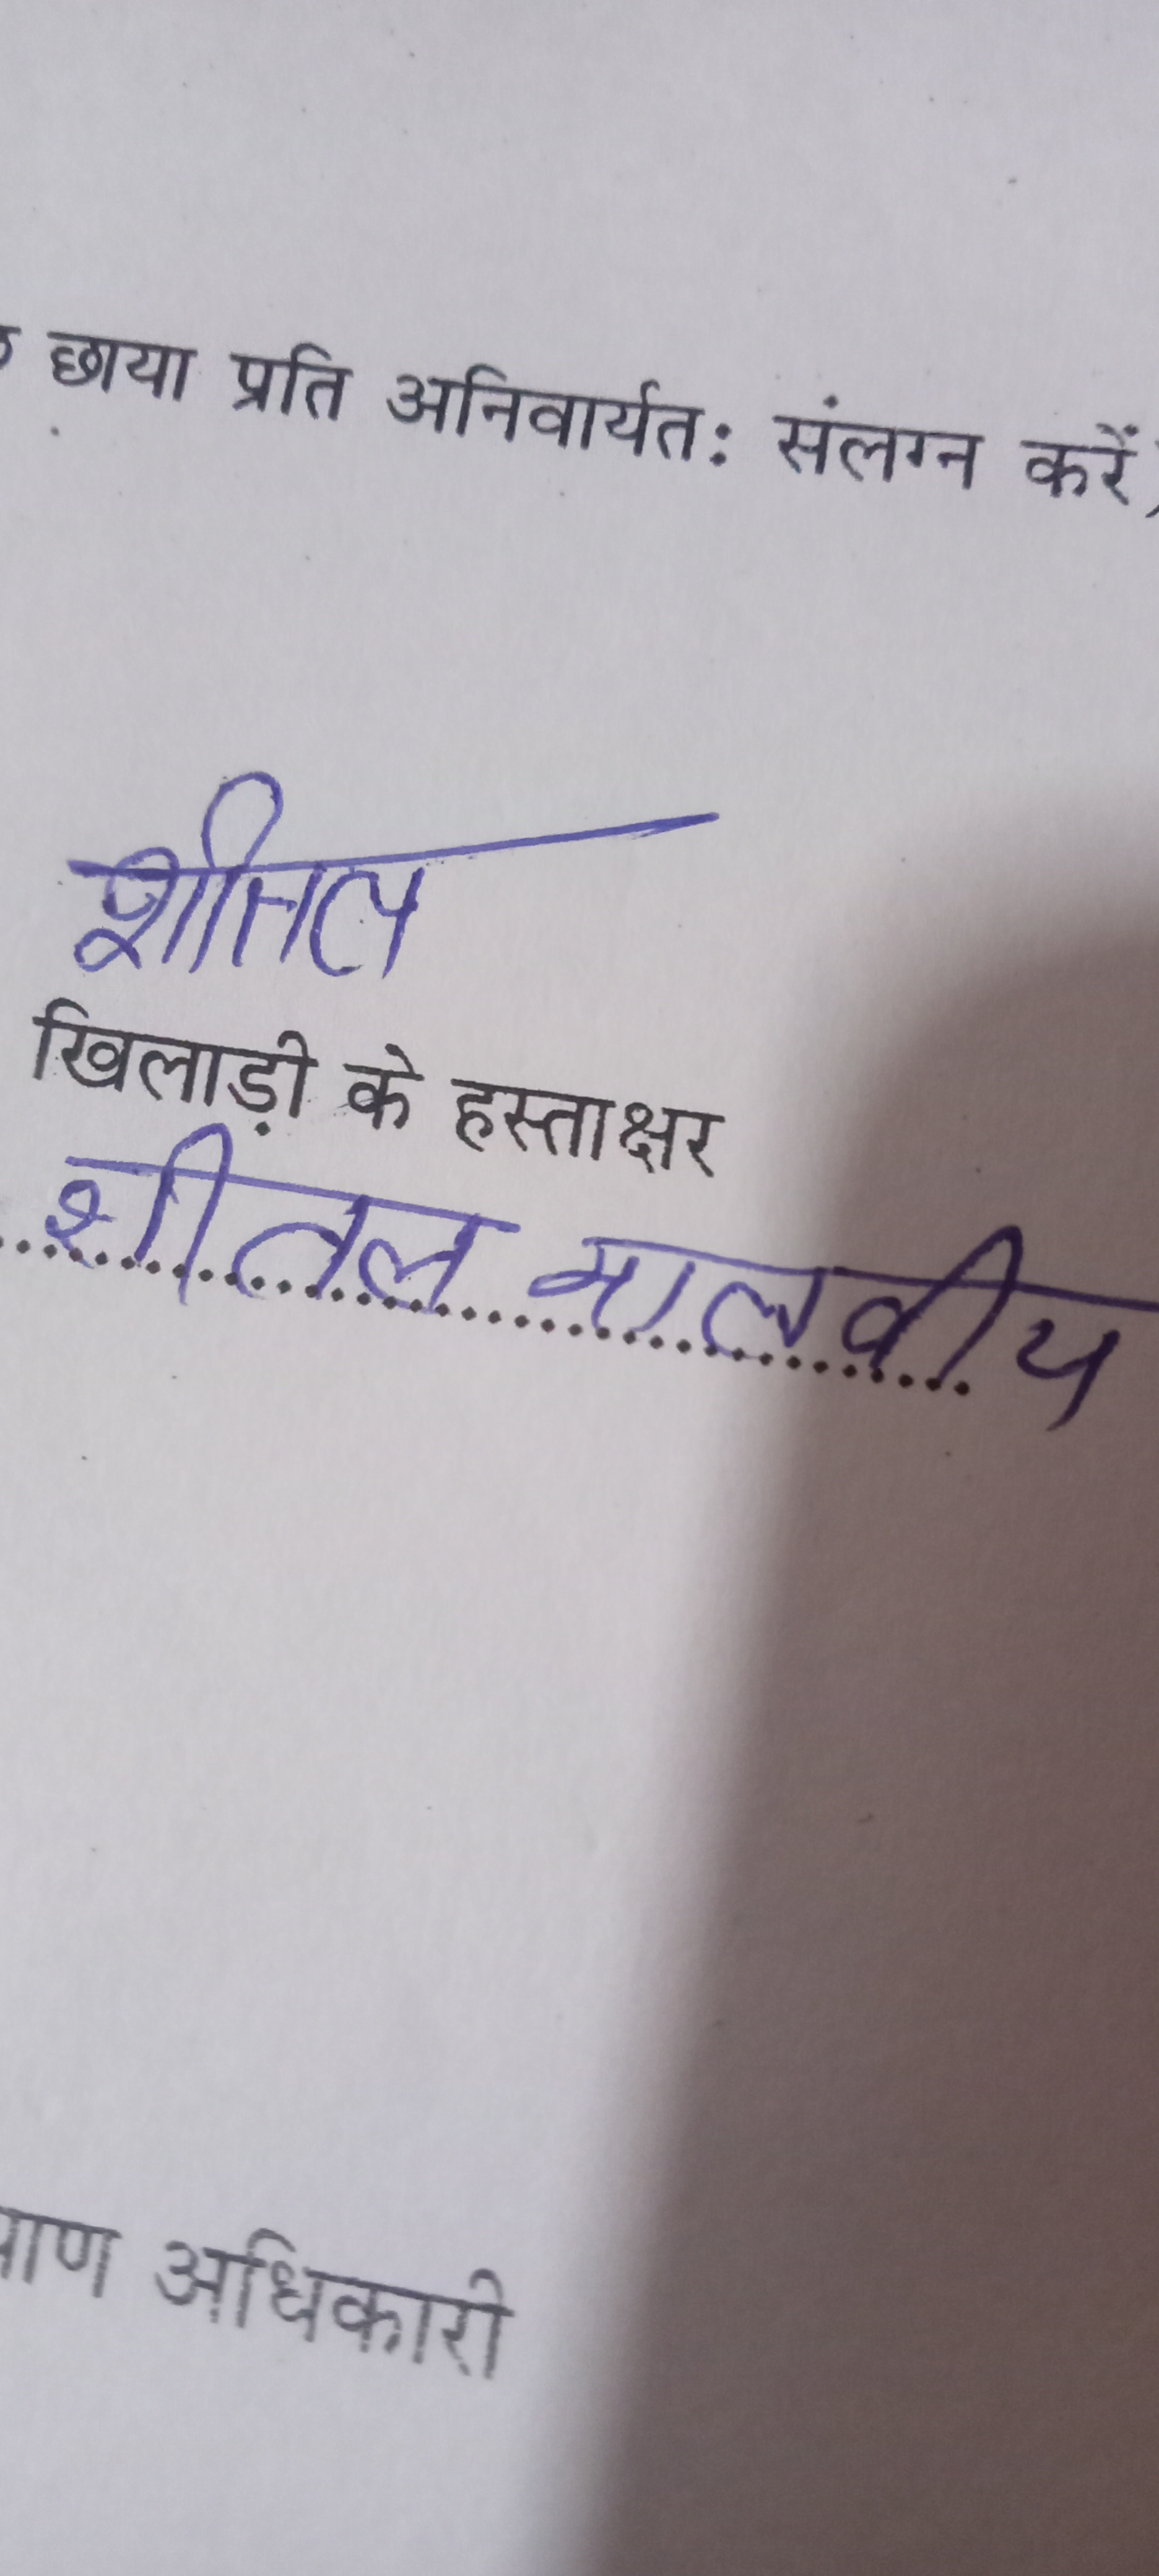 छाया प्रति अनिवार्यतः संलग्न करें)
शीतल
खिलाड़ी के हस्ताक्षर
शीतल मालवीय
अधिकारी